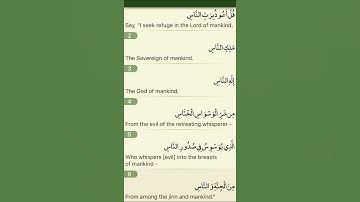 قُلْ أَعُوذُ بِرَبِّ النَّاسِ
Say, "I seek refuge in the Lord of mankind,
2
مَلِكِ النَّاسِ
The Sovereign of mankind.
3
إِلَٰهِ النَّاسِ
The God of mankind,
4
مِن شَرِّ الْوَسْوَاسِ الْخَنَّاسِ
From the evil of the retreating whisperer -
5
الَّذِي يُوَسْوِسُ فِي صُدُورِ النَّاسِ
Who whispers [evil] into the breasts
of mankind -
6
مِنَ الْجِنَّةِ وَالنَّاسِ
From among the jinn and mankind."